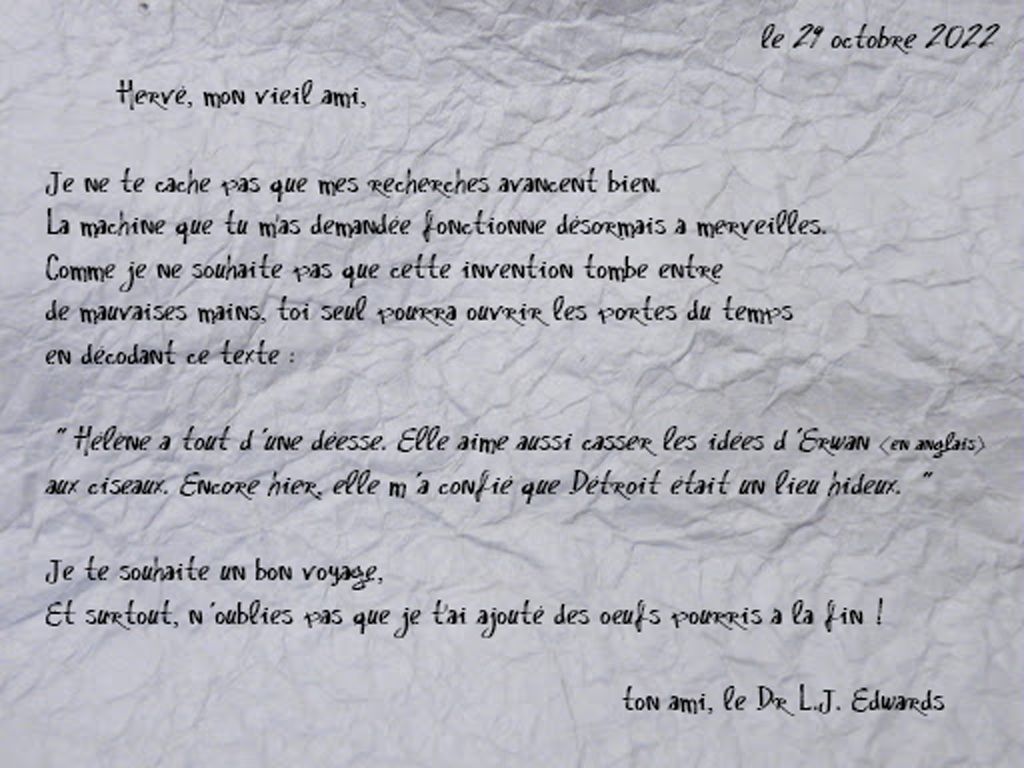 le 29 octobre 2022
Hervé, mon vieil ami,
Je ne te cache pas que mes recherches avancent bien.
La machine que tu m'as demandée fonctionne désormais a merveilles.
Comme je ne souhaite pas que cette invention tombe entre
de mauvaises mains, toi seul pourra ouvrir les portes du temps
en décodant ce texte :
" Hélène a tout d'une déesse. Elle aime aussi casser les idées d'Erwan (en anglais)
aux ciseaux. Encore hier, elle m'a confié que Détroit était un lieu hideux. "
Je te souhaite un bon voyage,
Et surtout, n'oublies pas que je t'ai ajouté des oeufs pourris a la fin !
ton ami, le Dr L.J. Edwards